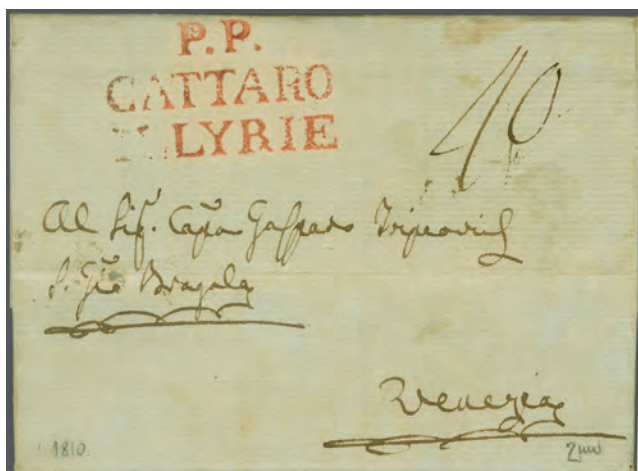 P.P.
CATTARO
ILLYRIE
40
Al Sig. Capn Gasparo Tripcovich
S. Gio Bragola
Venezia
1810.